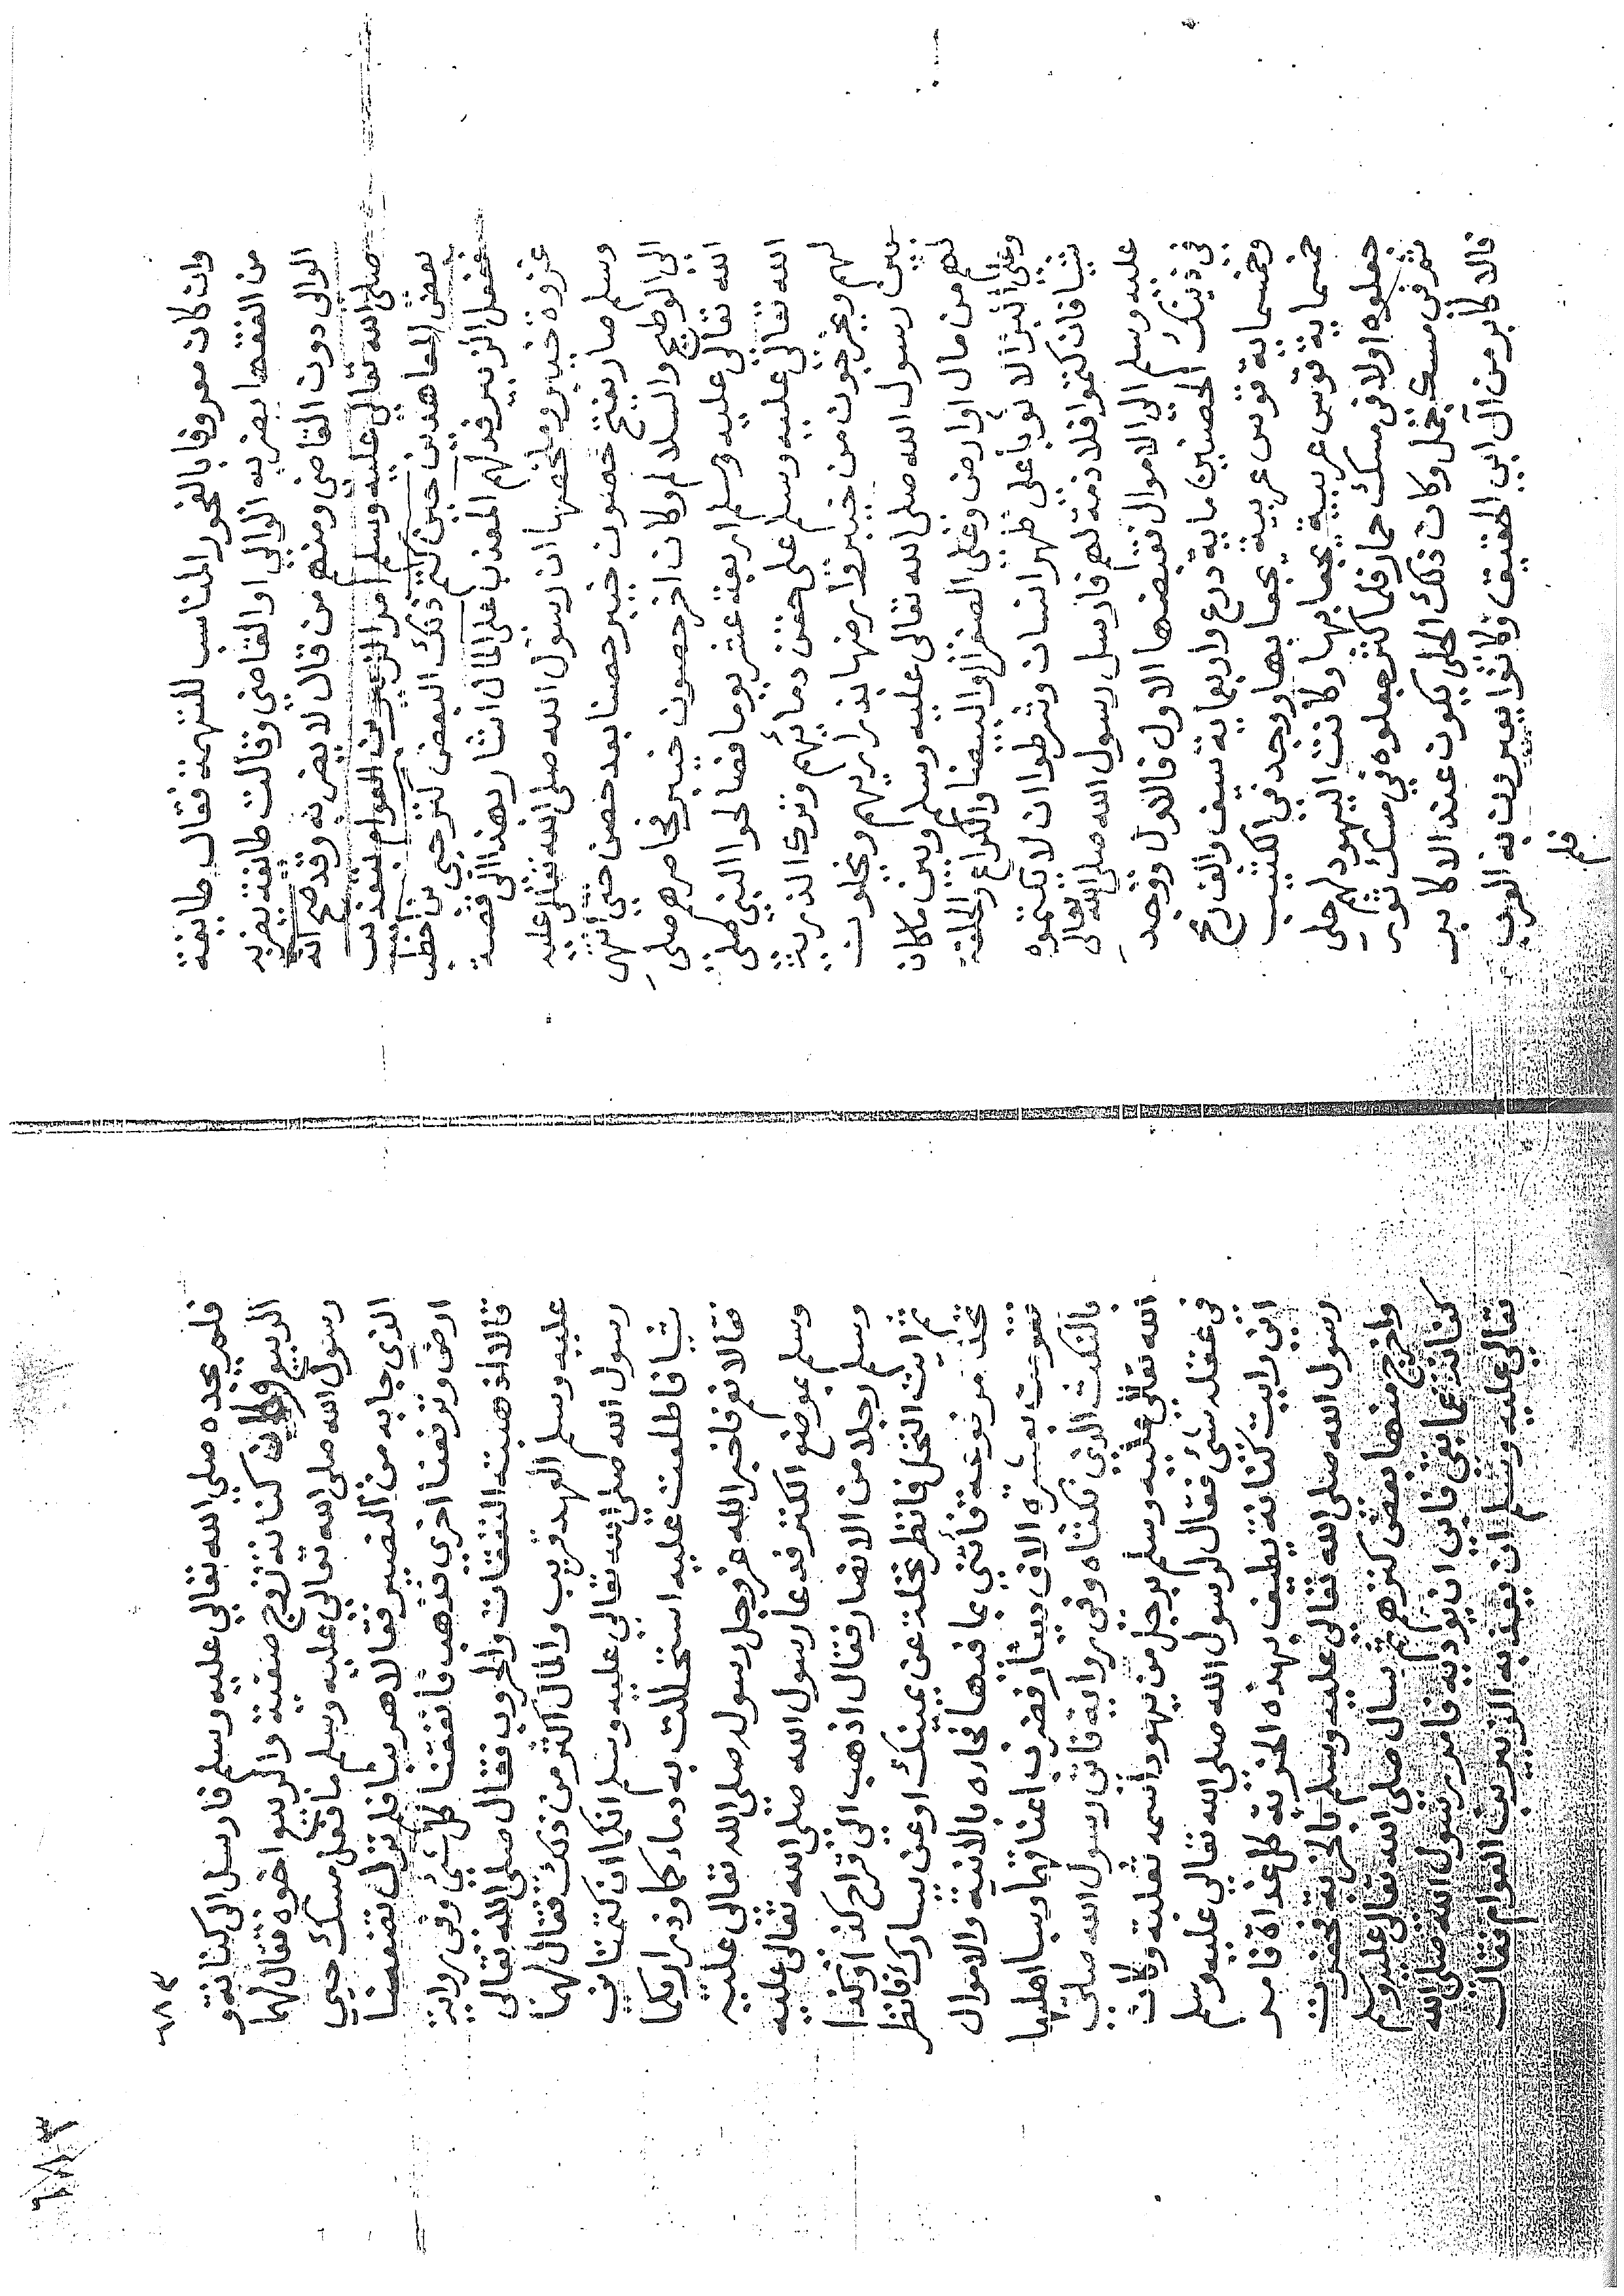 وان كان معروفا بالفجور المناسب للتهمة فقال طايفة
من الفقها يضربه الوالي او القاضي وقالت طايفة يضربه
الوالي دون القاضي ومنهم من قال لا يضربه وقد صح انه
صلى الله تعالى عليه وسلم امر الزبير بن العوام بتعذيب
بعض المعاهدين حين كتم ذلك البعض كنز حيي بن اخطب
ففعل الزبير قد لهم المعذب على المال اشار بهذا الى قصة
غزوة خيبر وملخصها ان رسول الله صلى الله تعالى عليه
وسلم صار يفتح حصون خيبر حصنا بعد حصن حتى انتهى
الى الوطيح والسلالم وكان اخر حصون خيبر فحاصرهم صلى
الله تعالى عليه وسلم اربعة عشر يوما فصالحوا النبي صلى
الله تعالى عليه وسلم على حقن دمائهم وترك الذرية
لهم ويخرجون من خيبر وارضها بذراريهم ويخلون
بين رسول الله صلى الله تعالى عليه وسلم وبين ماكان
لهم من مال او ارض وعلى الصفرا والبيضا والكراع والحلقة
وعلى البز الا ثوبا على ظهر انسان وشرطوا ان لا يكتموه
شيا فان كتموا فلا ذمة لهم فارسل رسول الله صلى الله تعالى
عليه وسلم الى الاموال فقبضها الاول فالاول ووجد
في ذينك الحصنين ماية درع واربعماية سيف والف رمح
وخمسماية قوس عربية بجعابها ووجد في الكتيبة
خمسماية قوس عربية بجعابها وكانت اليهود لهم حلي
جعلوه اولا في مسك حمار فلما كثر جعلوه في مسك ثور
ثم في مسك جمل وكان ذلك الحلي يكون عند الاكابر
فالاكابر من آل ابي الحقيق وكانوا يعيرون به العرب
فلم
٦٨٣
٦٨٣
فلم يجده صلى الله تعالى عليه وسلم فارسل الى كنانة و
الربيع وكان كنانة تزوج صفية والربيع اخوه فقال لهما
رسول الله صلى الله تعالى عليه وسلم ما فعل مسك حيي
الذي جا به من النضير فقالا هربنا فلم تزل تضعنا
ارض وترفعنا اخرى فذهب فانفقنا كل شئ وفي رواية
قالا اذهبته النفقات والحروب فقال صلى الله تعالى
عليه وسلم العهد قريب والمال اكثر من ذلك فقال لهما
رسول الله صلى الله تعالى عليه وسلم انكما ان كتمتماني
شيا فاطلعت عليه استحللت به دماءكما وذراريكما
فقالا نعم فاخبر الله عز وجل رسوله صلى الله تعالى عليه
وسلم بموضع الكنز فدعا رسول الله صلى الله تعالى عليه
وسلم رجلا من الانصار فقال اذهب الى قراح كذا وكذا
ثم ائت النخل فانظر نخلة عن يمينك او عن يسارك فانظر
نخلة مرفوعة فأتني بما فيها فجاءه بالانية والاموال
فقومت بعشرة الاف دينار فضرب اعناقهما وسبا اهليهما
بالنكث الذي نكثاه وفي رواية فاتى رسول الله صلى
الله تعالى عليه وسلم برجل من يهود اسمه ثعلبة وكان
في عقله شئ فقال لرسول الله صلى الله تعالى عليه وسلم
اني رايت كنانة يطيف بهذه الخربة كل غداة فامر
رسول الله صلى الله تعالى عليه وسلم بالخربة فحفرت
واخرج منها بعض كنزهم ثم سال صلى الله تعالى عليه وسلم
كنانة عما بقي فابى ان يوديه فامر رسول الله صلى الله
تعالى عليه وسلم ان يعذبه الزبير بن العوام فقال